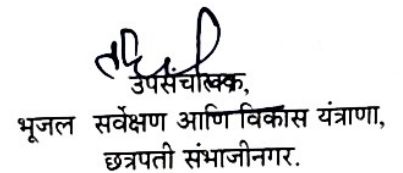 उपसंचालक,
भूजल सर्वेक्षण आणि विकास यंत्राणा,
छत्रपती संभाजीनगर.